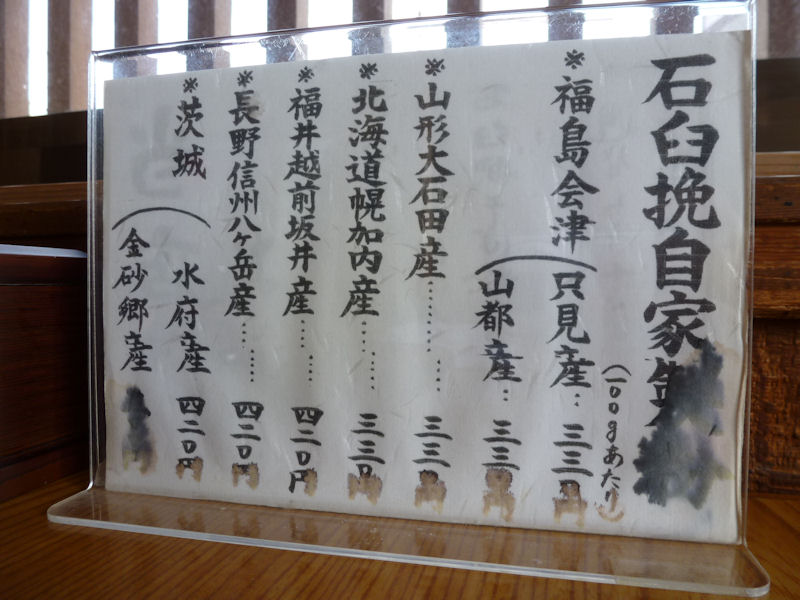 石臼挽自家製
(一〇〇gあたり)
※福島会津
只見産‥三三〇円
山都産‥三三〇
※山形大石田産………三三〇
※北海道幌加内産………三三〇
※福井越前坂井産………四二〇円
※長野信州八ヶ岳産………四二〇円
※茨城
水府産 四二〇円
金砂郷産